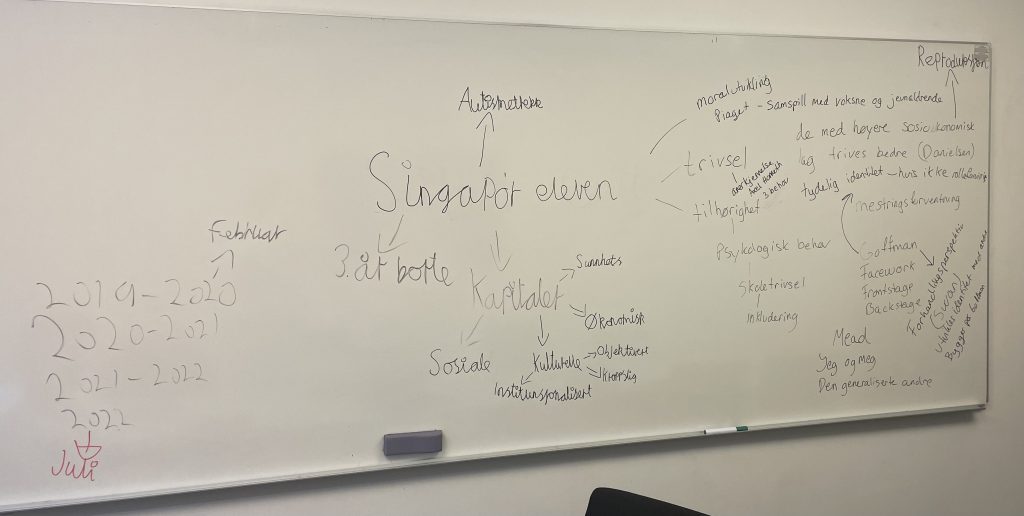 Februar
2019-2020
2020-2021
2021-2022
2022
Juli
Singapør eleven
3. år borte
Kapitaler
Sunnhets
Økonomisk
Sosiale
Kulturelle
Objektivert
Kroppslig
Institunsjonalisert
moralutvikling
Piaget - Samspill med voksne og jevnaldrende
Reproduksjon
de med høyere sosioøkonomisk
lag trives bedre (Danielsen)
trivsel
anerkjennelse
3. behov
tydelig identitet - hvis ikke
tilhørighet
mestringsforventning
Psykologisk behov
Skoletrivsel
Inkludering
Goffman
Facework
Frontstage
Backstage
Forhandlingsperspektiv
Utvikler identitet med andre
Bygger på Goffman
Mead
Jeg og meg
Den generaliserte andre